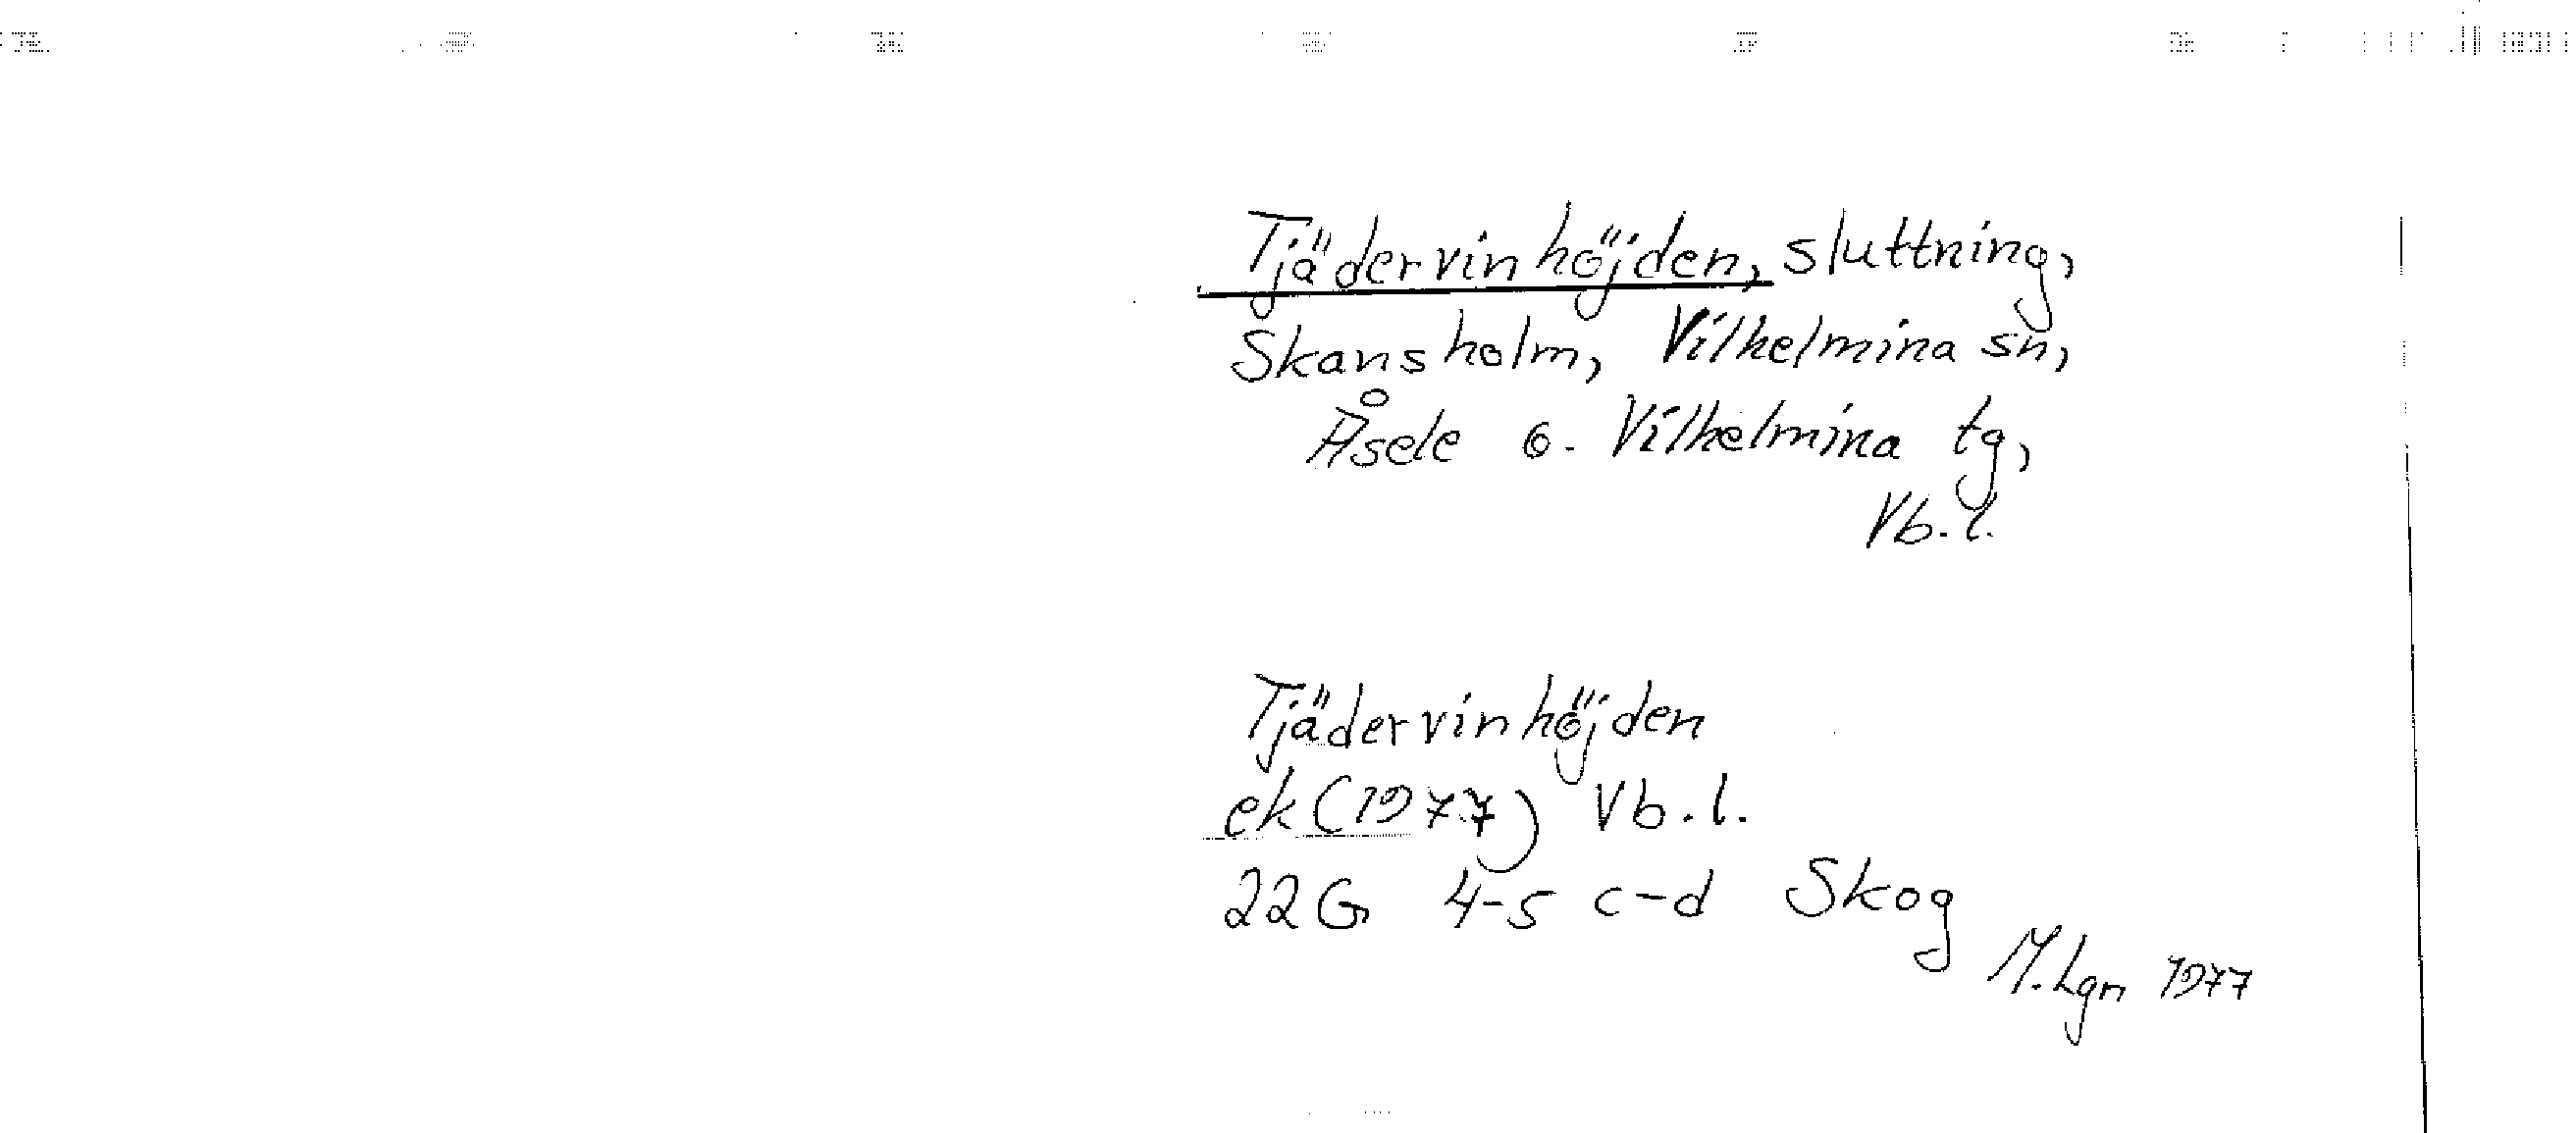 Tjädervinhöjden, sluttning,
Skansholm, Vilhelmina sn,
Åsele o. Vilhelmina tg,
Vb.l.
Tjädervinhöjden
ek (1977) Vb.l.
22G 4-5 c-d Skog
M.Lgn 1977